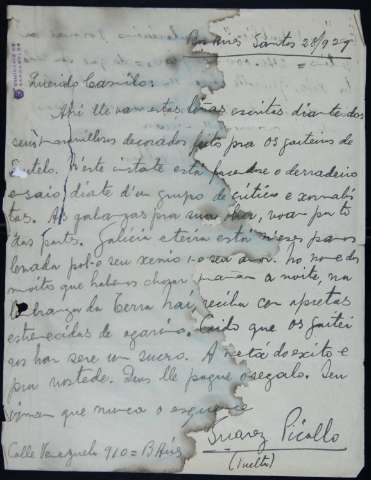 Buenos Santos 28/929
Querido Castelo:
Ahí lle van estas liñas escritas diante dos
seus maravillosos decorados feito pra os gaiteiros de
Soutelo. N'este istante está facendose o derradeiro
ensaio diante d'un grupo de críticos e xornalis
tas. As gabanzas pra sua obra, voan por to
das partes. Galicia enteira está n'eses panos
lenada polo seu xenio e o seu amor. No nome dos
moitos que habemos chorar mañan a noite, na
lembranza da Terra nai, reciba con apretas
estremecidas de agarimo. Coido que os gaitei
ros han sere un suceso. A metá do exito e
pra vostede. Deus lle pague o regalo. Seu
irman que nunca o esquence
Suarez Picallo
(Suelto)
Calle Venezuela 910 = B Aires